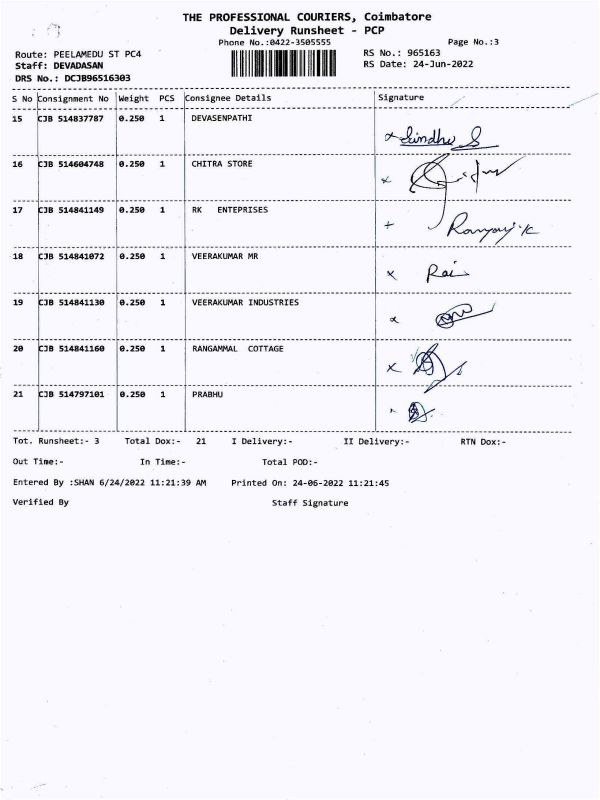 THE PROFESSIONAL COURIERS, Coimbatore
Delivery Runsheet - PCP
Phone No.:0422-3505555 Page No.:3
Route: PEELAMEDU ST PC4 RS No.: 965163
Staff: DEVADASAN RS Date: 24-Jun-2022
DRS No.: DCJB96516303
S No Consignment No Weight PCS Consignee Details Signature
15 CJB 514837787 0.250 1 DEVASENPATHI
x Sindhu S
16 CJB 514604748 0.250 1 CHITRA STORE
x
17 CJB 514841149 0.250 1 RK ENTEPRISES
+
18 CJB 514841072 0.250 1 VEERAKUMAR MR
x Rai
19 CJB 514841130 0.250 1 VEERAKUMAR INDUSTRIES
x
20 CJB 514841160 0.250 1 RANGAMMAL COTTAGE
x
21 CJB 514797101 0.250 1 PRABHU
Tot. Runsheet:- 3 Total Dox:- 21 I Delivery:- II Delivery:- RTN Dox:-
Out Time:- In Time:- Total POD:-
Entered By :SHAN 6/24/2022 11:21:39 AM Printed On: 24-06-2022 11:21:45
Verified By Staff Signature